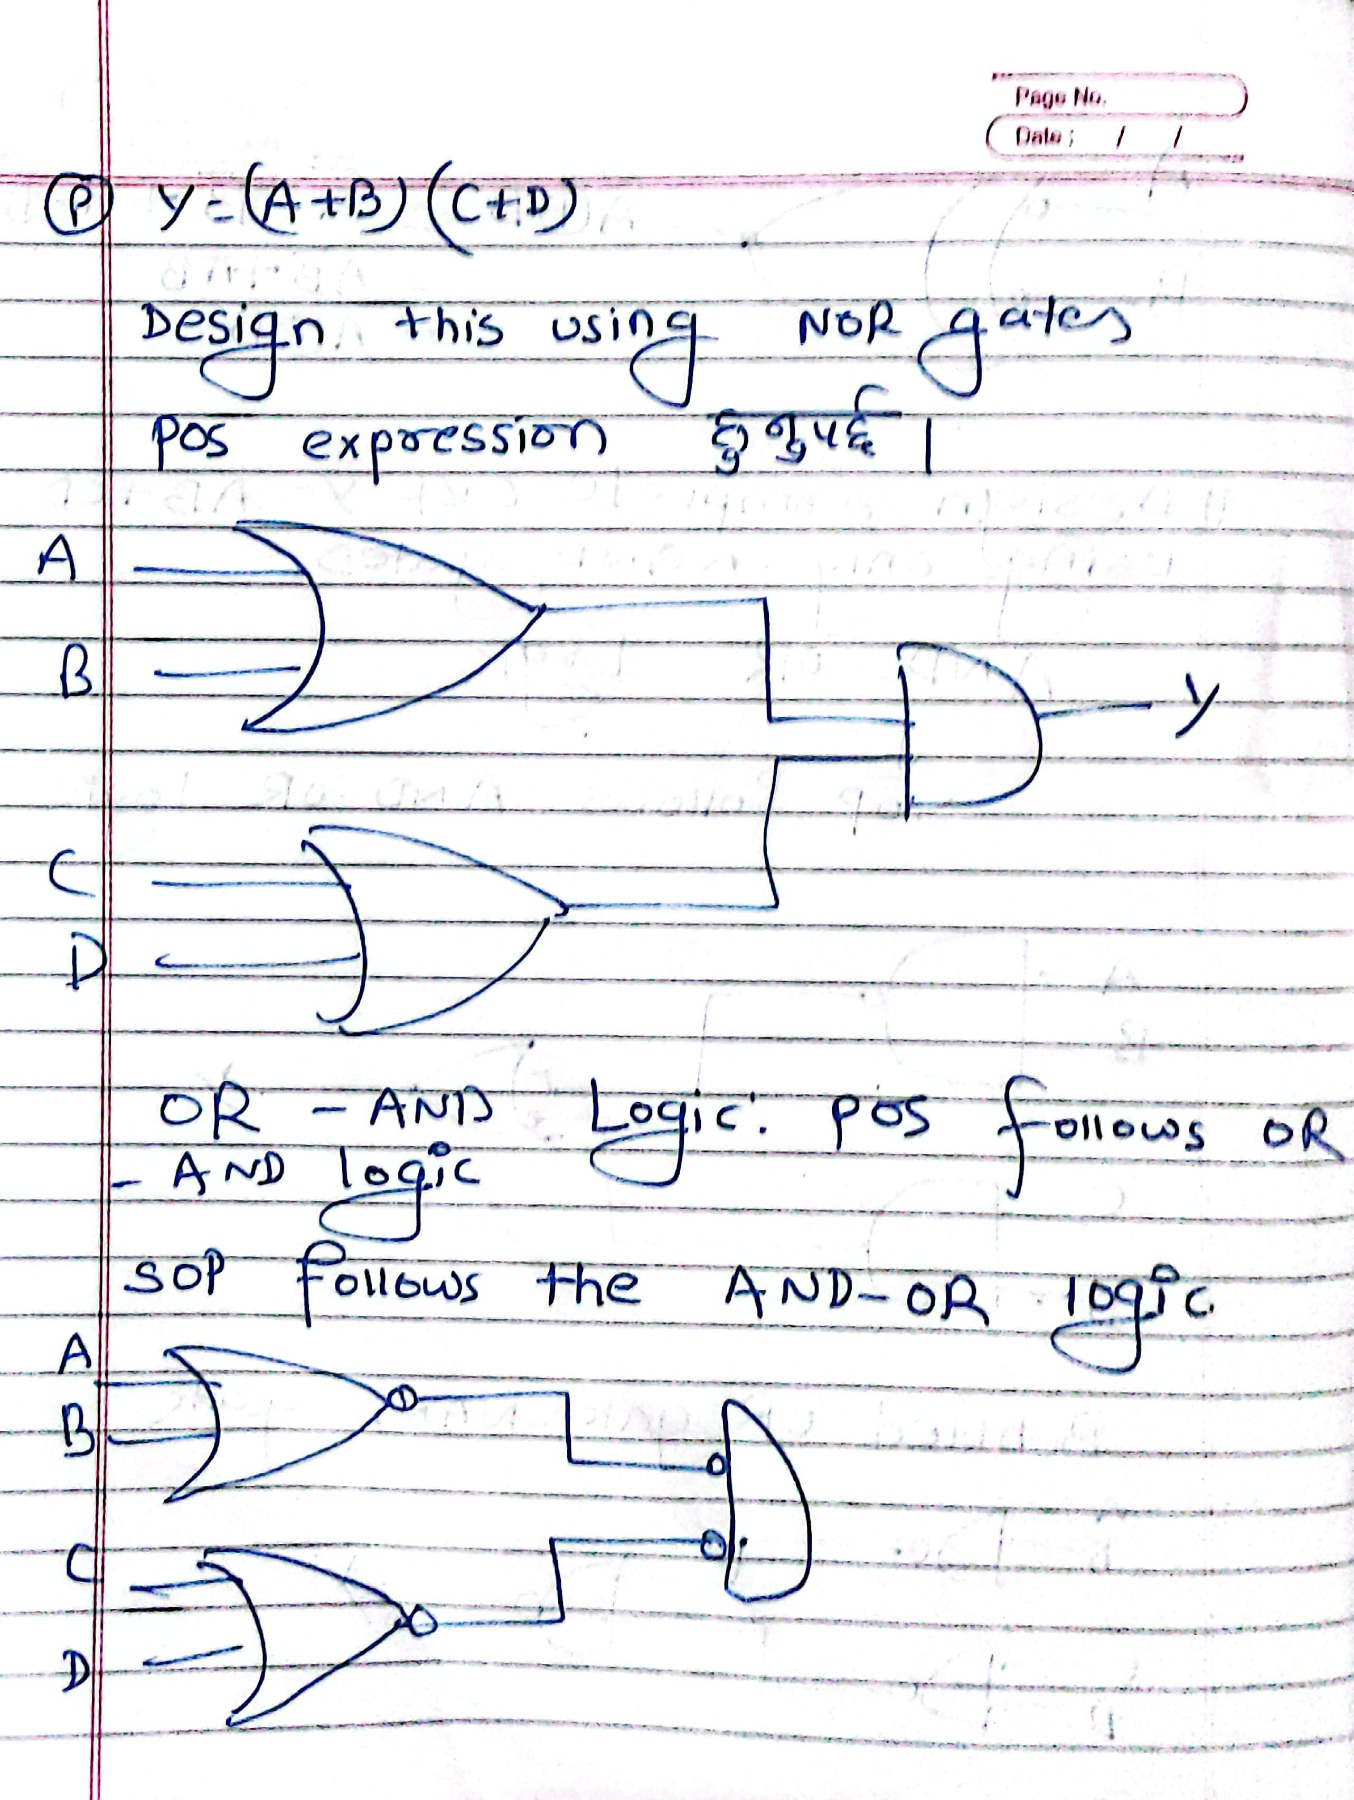 Page No.
Date: / /
P Y = (A+B) (C+D)
Design this using NOR gates
POS expression हुनुपर्छ ।
A
B
Y
C
D
OR - AND Logic. POS follows OR
- AND logic
SOP follows the AND-OR logic
A
B
C
D